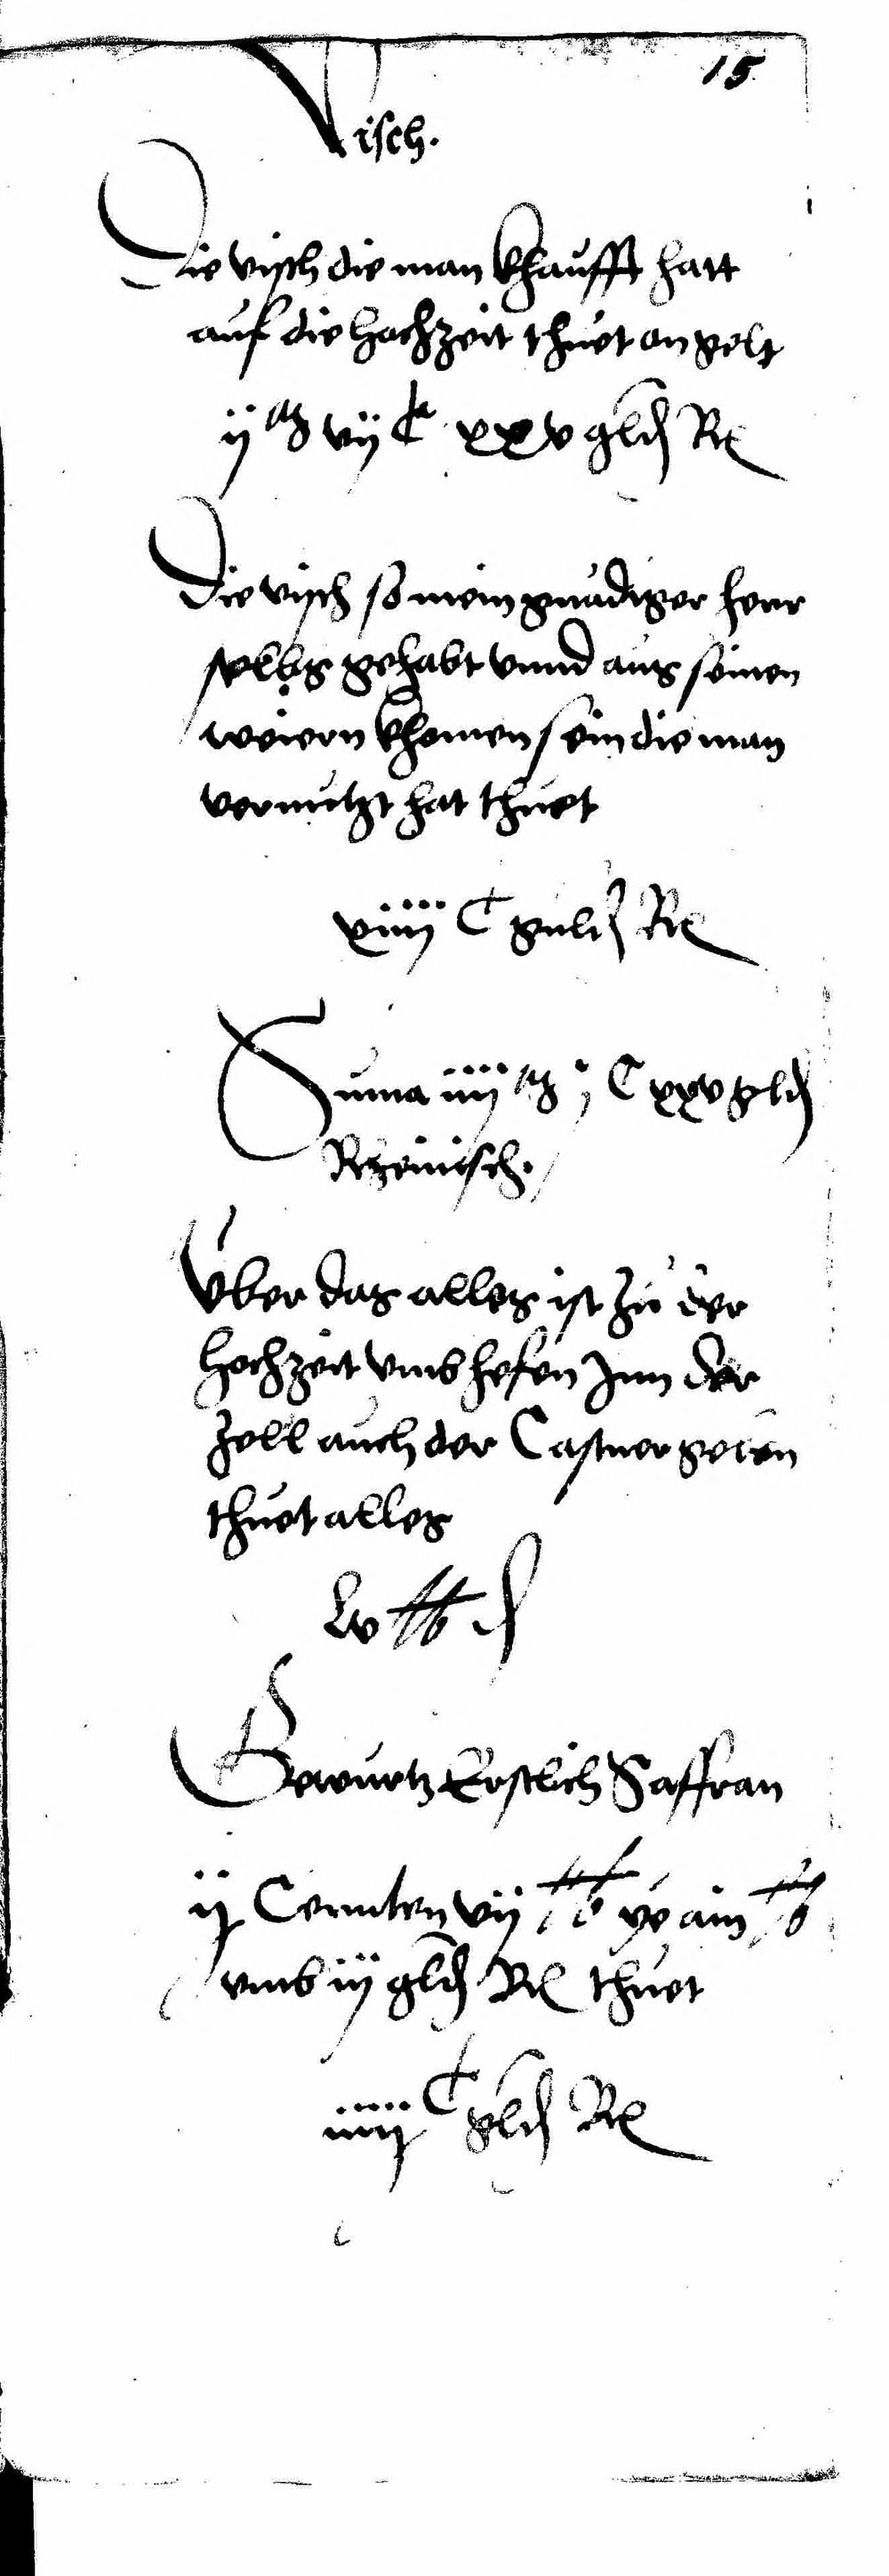 15
Visch.
Die visch die man khaufft hatt
auf die hochzeit thuet an gelt
ij M vij C xxv gld Rh
Die visch so mein gnadiger herr
selbs gehabt vnnd aus seinen
weiern khomen sein die man
vernutzt hat thuet
xiiij C guld Rh
Suma iiij M j C xxv gld
Rheinisch.
Vber das alles ist zu der
hochzeit vmb hefen Inn der
Zell auch der Castner geben
thuet alles
Lv lb d
Gewurtz Erstlich Saffran
ij Centten vij lb ye ain lb
vmb iij gld Rh thuet
iiiij C gld Rh